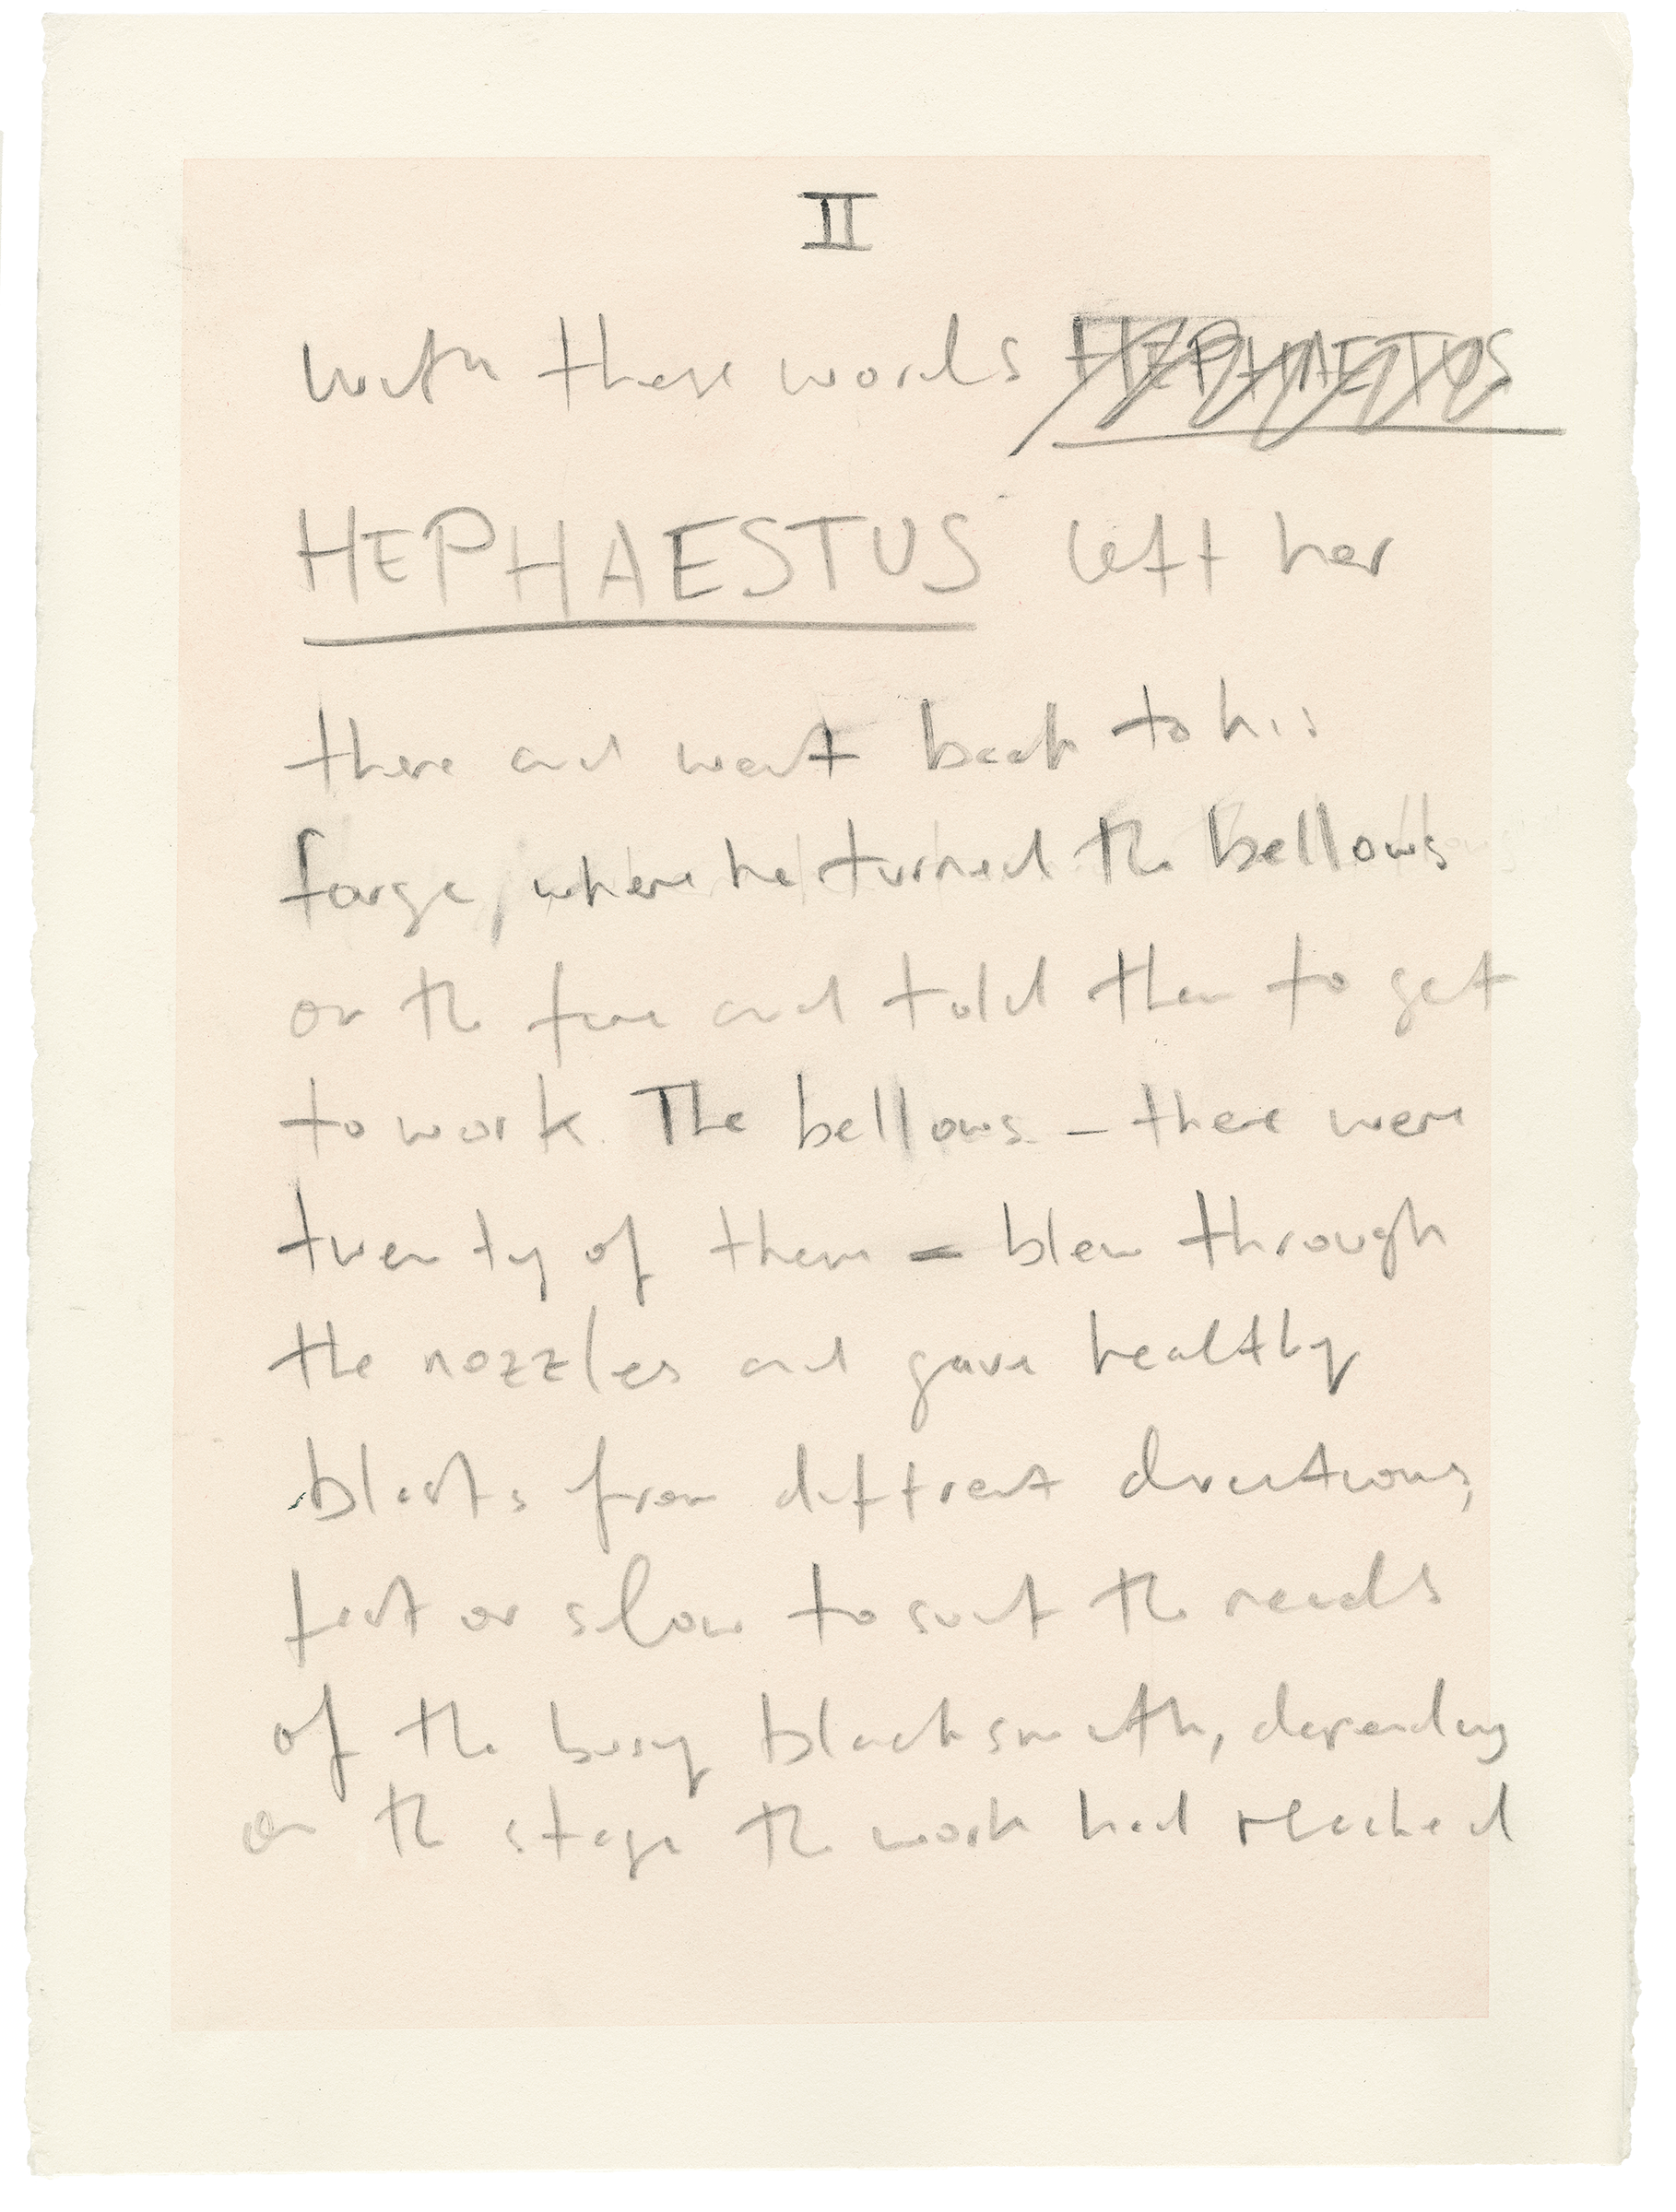 II
with these words HEPHAETUS
HEPHAESTUS left her
there and went back to his
forge, where he turned the bellows
on the fire and told them to get
to work. The bellows – there were
twenty of them – blew through
the nozzles and gave healthy
blasts from diffrent directions,
fast or slow to suit the needs
of the busy blacksmith, depending
on the stage the work had reached